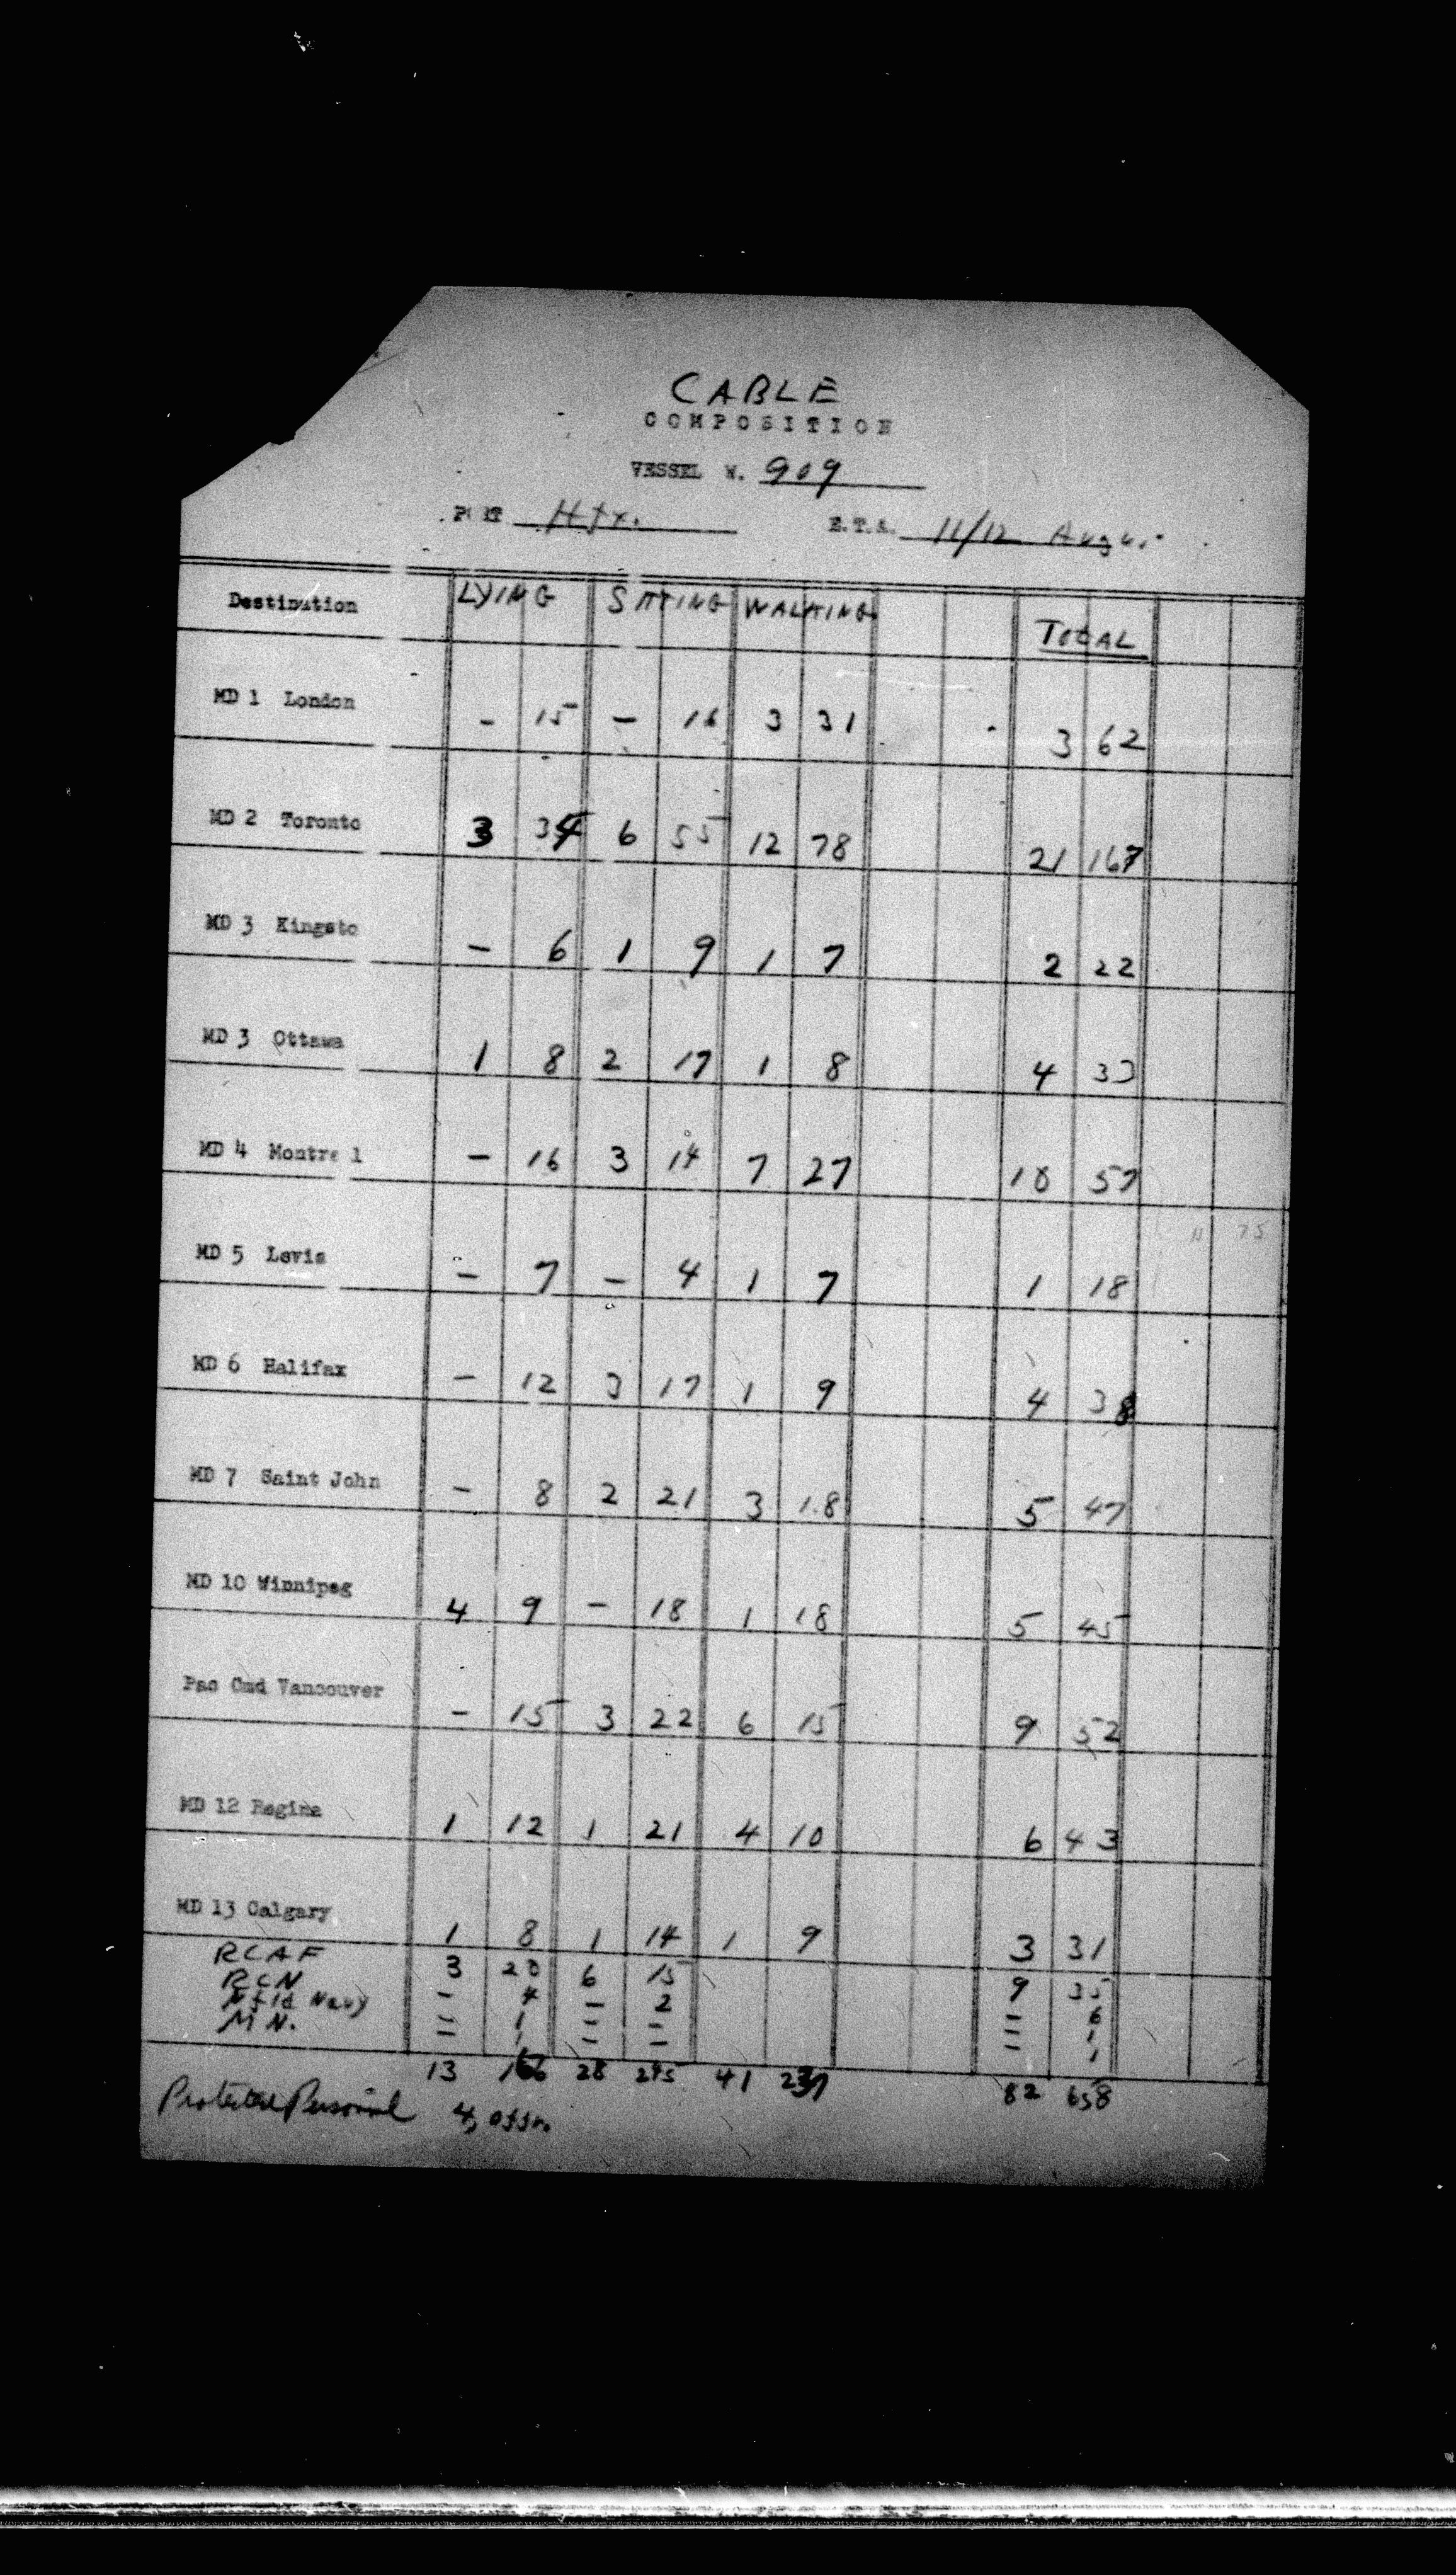 CABLE
COMPOSITION
VESSEL W. 909
PORT Hfx. E.T.A. 11/12 Aug
Destination LYING SITTING WALKING TOTAL
MD 1 London - 15 - 16 3 31 3 62
MD 2 Toronto 3 34 6 55 12 78 21 167
MD 3 Kingsto - 6 1 9 1 7 2 22
MD 3 Ottawa 1 8 2 17 1 8 4 33
MD 4 Montre l - 16 3 14 7 27 10 57
75
MD 5 Levis - 7 - 4 1 7 1 18
MD 6 Halifax - 12 3 17 1 9 4 38
MD 7 Saint John - 8 2 21 3 18 5 47
MD 10 Winnipeg 4 9 - 18 1 18 5 45
Pac Cmd Vancouver - 15 3 22 6 15 9 52
MD 12 Regina 1 12 1 21 4 10 6 43
MD 13 Calgary 1 8 1 14 1 9 3 31
RCAF 3 20 6 15 9 35
RCN - 4 - 2 - 6
Nfld Navy - 1 - - - 1
M N. - 1 - - - 1
13 166 28 245 41 237 82 658
Protected Personnel 4, offrs.